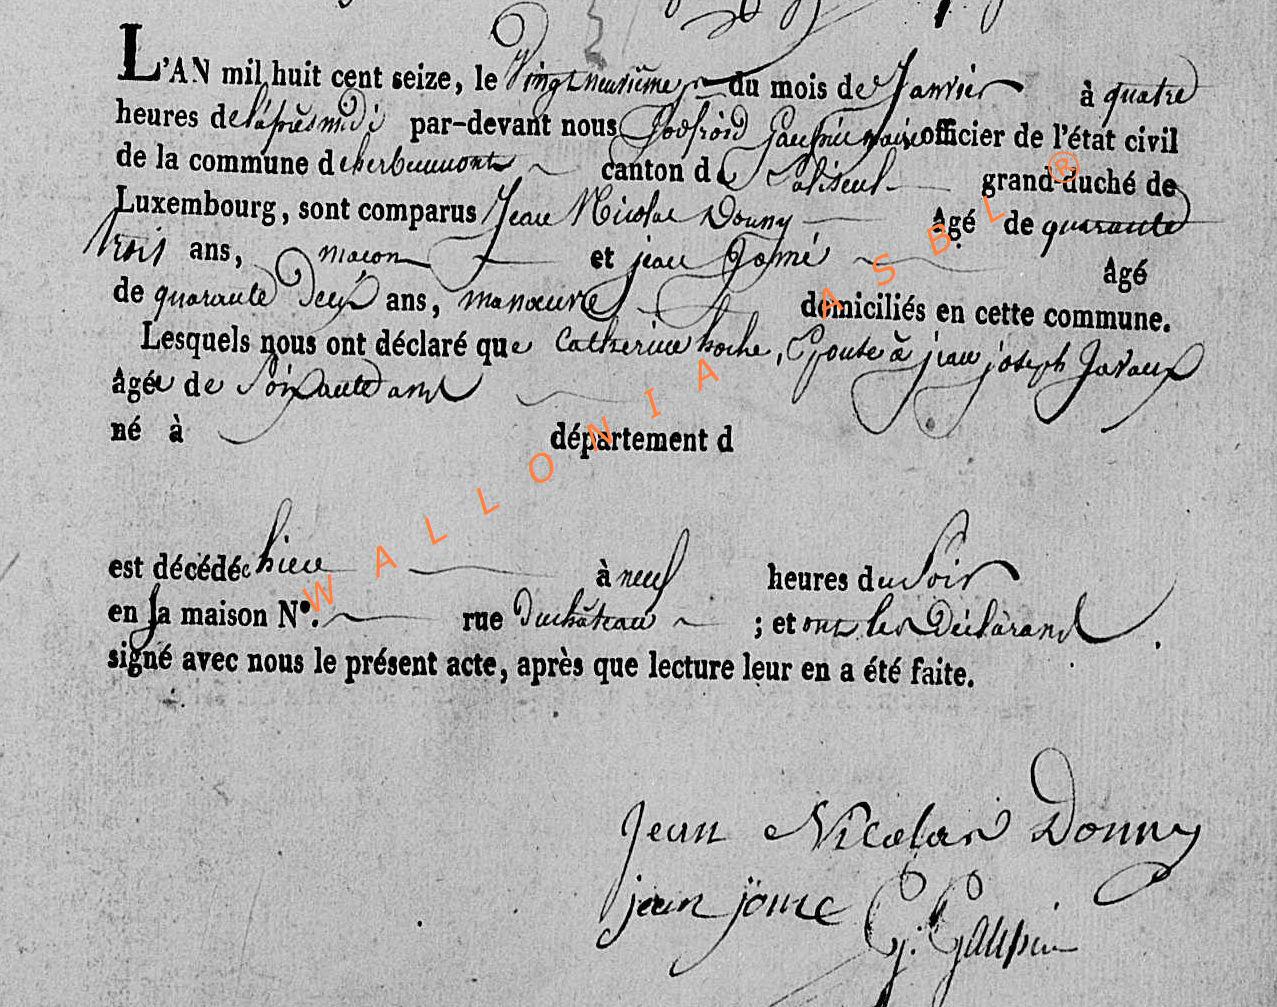 L'AN mil huit cent seize, le Vingt neuvième du mois de Janvier à quatre
heures de l'après midi par-devant nous Godfroid Gaupin maire officier de l'état civil
de la commune d'herbeumont canton de Paliseul grand-duché de
Luxembourg, sont comparus Jean Nicolas Donny âgé de quarante
trois ans, macon et jean Jomé âgé
de quarante deux ans, manœuvre domiciliés en cette commune.
Lesquels nous ont déclaré que Catherine hoche, Epouse à jean joseph Javaux
âgée de Soixante ans
né à département d
est décédée hier à neuf heures du Soir
en sa maison N°. rue du château ; et ont les Déclarans
signé avec nous le présent acte, après que lecture leur en a été faite.
Jean Nicolas Donny
jean jome G. Gaupin
WALLONIA ASBL ®